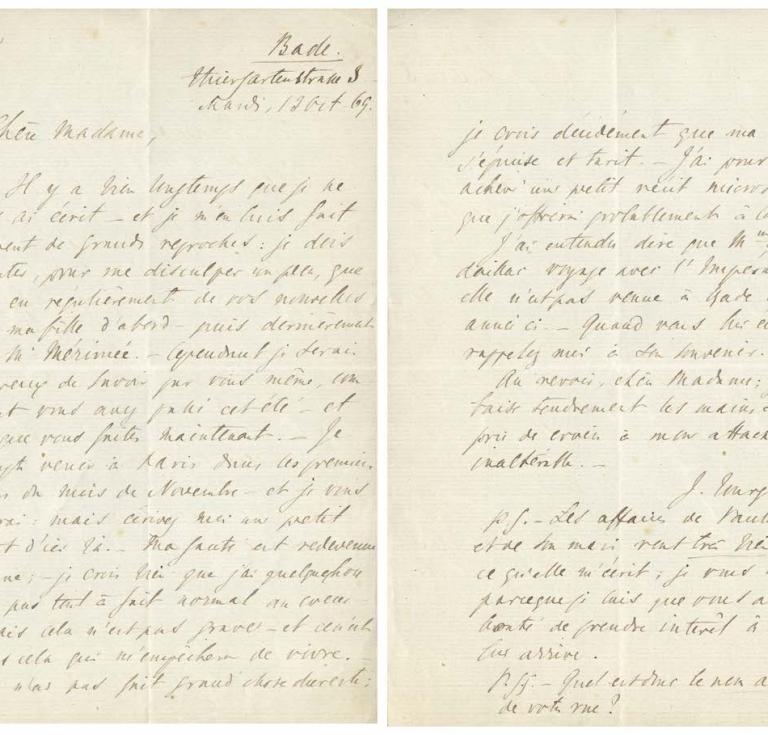 Bade.
Thiergartenstrasse 3
Mardi, 12 Oct 69.
Chère Madame,
Il y a bien longtemps que je ne
ai écrit – et je m'en suis fait
ent de grands reproches : je dois
pour me disculper un peu, que
eu régulièrement de vos nouvelles
ma fille d'abord – puis dernièrement
Mr Mérimée. – Cependant je serai
reux de savoir par vous même, com
nt vous avez passé cet été – et
que vous faites maintenant. – Je
venir à Paris dans les premiers
du mois de Novembre – et je vous
rai : mais écrivez moi un petit
t d'ici là. – Ma santé est redevenue
ne ; – je crois bien que j'ai quelque chose
pas tout à fait normal au coeur –
ais cela n'est pas grave – et ce n'est
s cela qui m'empêchera de vivre.
n'ai pas fait grand'chose
je crois décidément que ma
s'épuise et tarit. – J'ai pour
achevé un petit récit micros
que j'offrirai probablement à la
J'ai entendu dire que Mme
voyage avec l'Impéra
elle n'est pas venue à Bade
année ci. – Quand vous lui
rappelez moi à son souvenir.
Au revoir, chère Madame ;
baise tendrement les mains
prie de croire à mon attach
inaltérable. –
J. Tourg
P.S. – Les affaires de Paul
et de son mari vont très bien
ce qu'elle m'écrit ; je vous
parceque je sais que vous a
bonté de prendre intérêt à
lui arrive.
P.S. – Quel est donc le nom a
de votre rue ?